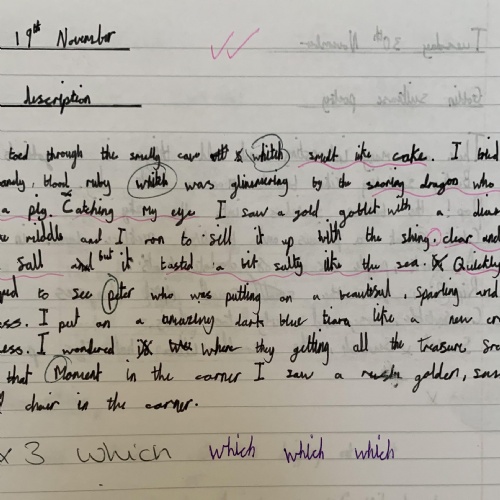 19th November
description
toed through the smelly cave whitch smelt like cake. I tried
blood ruby whitch was glimmering by the snoring dragon who
a pig. Catching My eye I saw a gold goblet with a
middle and I ran to fill it up with the shing, clear and
Salt and but it tasted a bit salty like the sea. Quickly
to see peter who was putting on a beautiful, Sparling and
I put on a amazing dark blue tiara like a new
I wondered where they getting all the treasure
that Moment in the corner I saw a golden,
chair in the corner.
x 3 which which which which